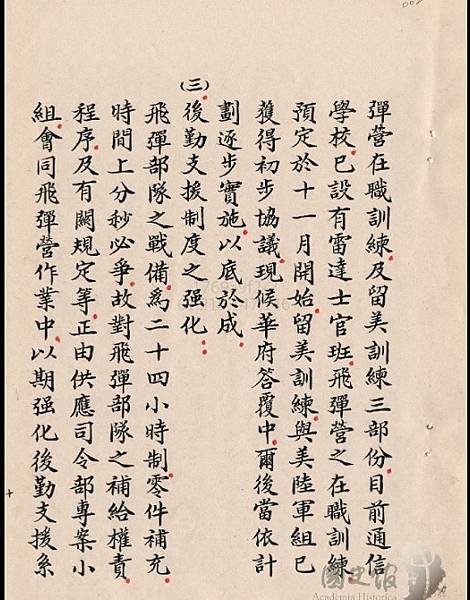 彈營在職訓練及留美訓練三部份目前通信
學校已設有雷達士官班飛彈營之在職訓練
預定於十一月開始留美訓練與美陸軍組已
獲得初步協議現候華府答覆中爾後當依計
劃逐步實施以底於成
(三)後勤支援制度之强化：
飛彈部隊之戰備為二十四小時制零件補充
時間上分秒必爭故對飛彈部隊之補給權責
程序及有關規定等正由供應司令部專案小
組會同飛彈營作業中以期强化後勤支援系
國史館
Academia Historica